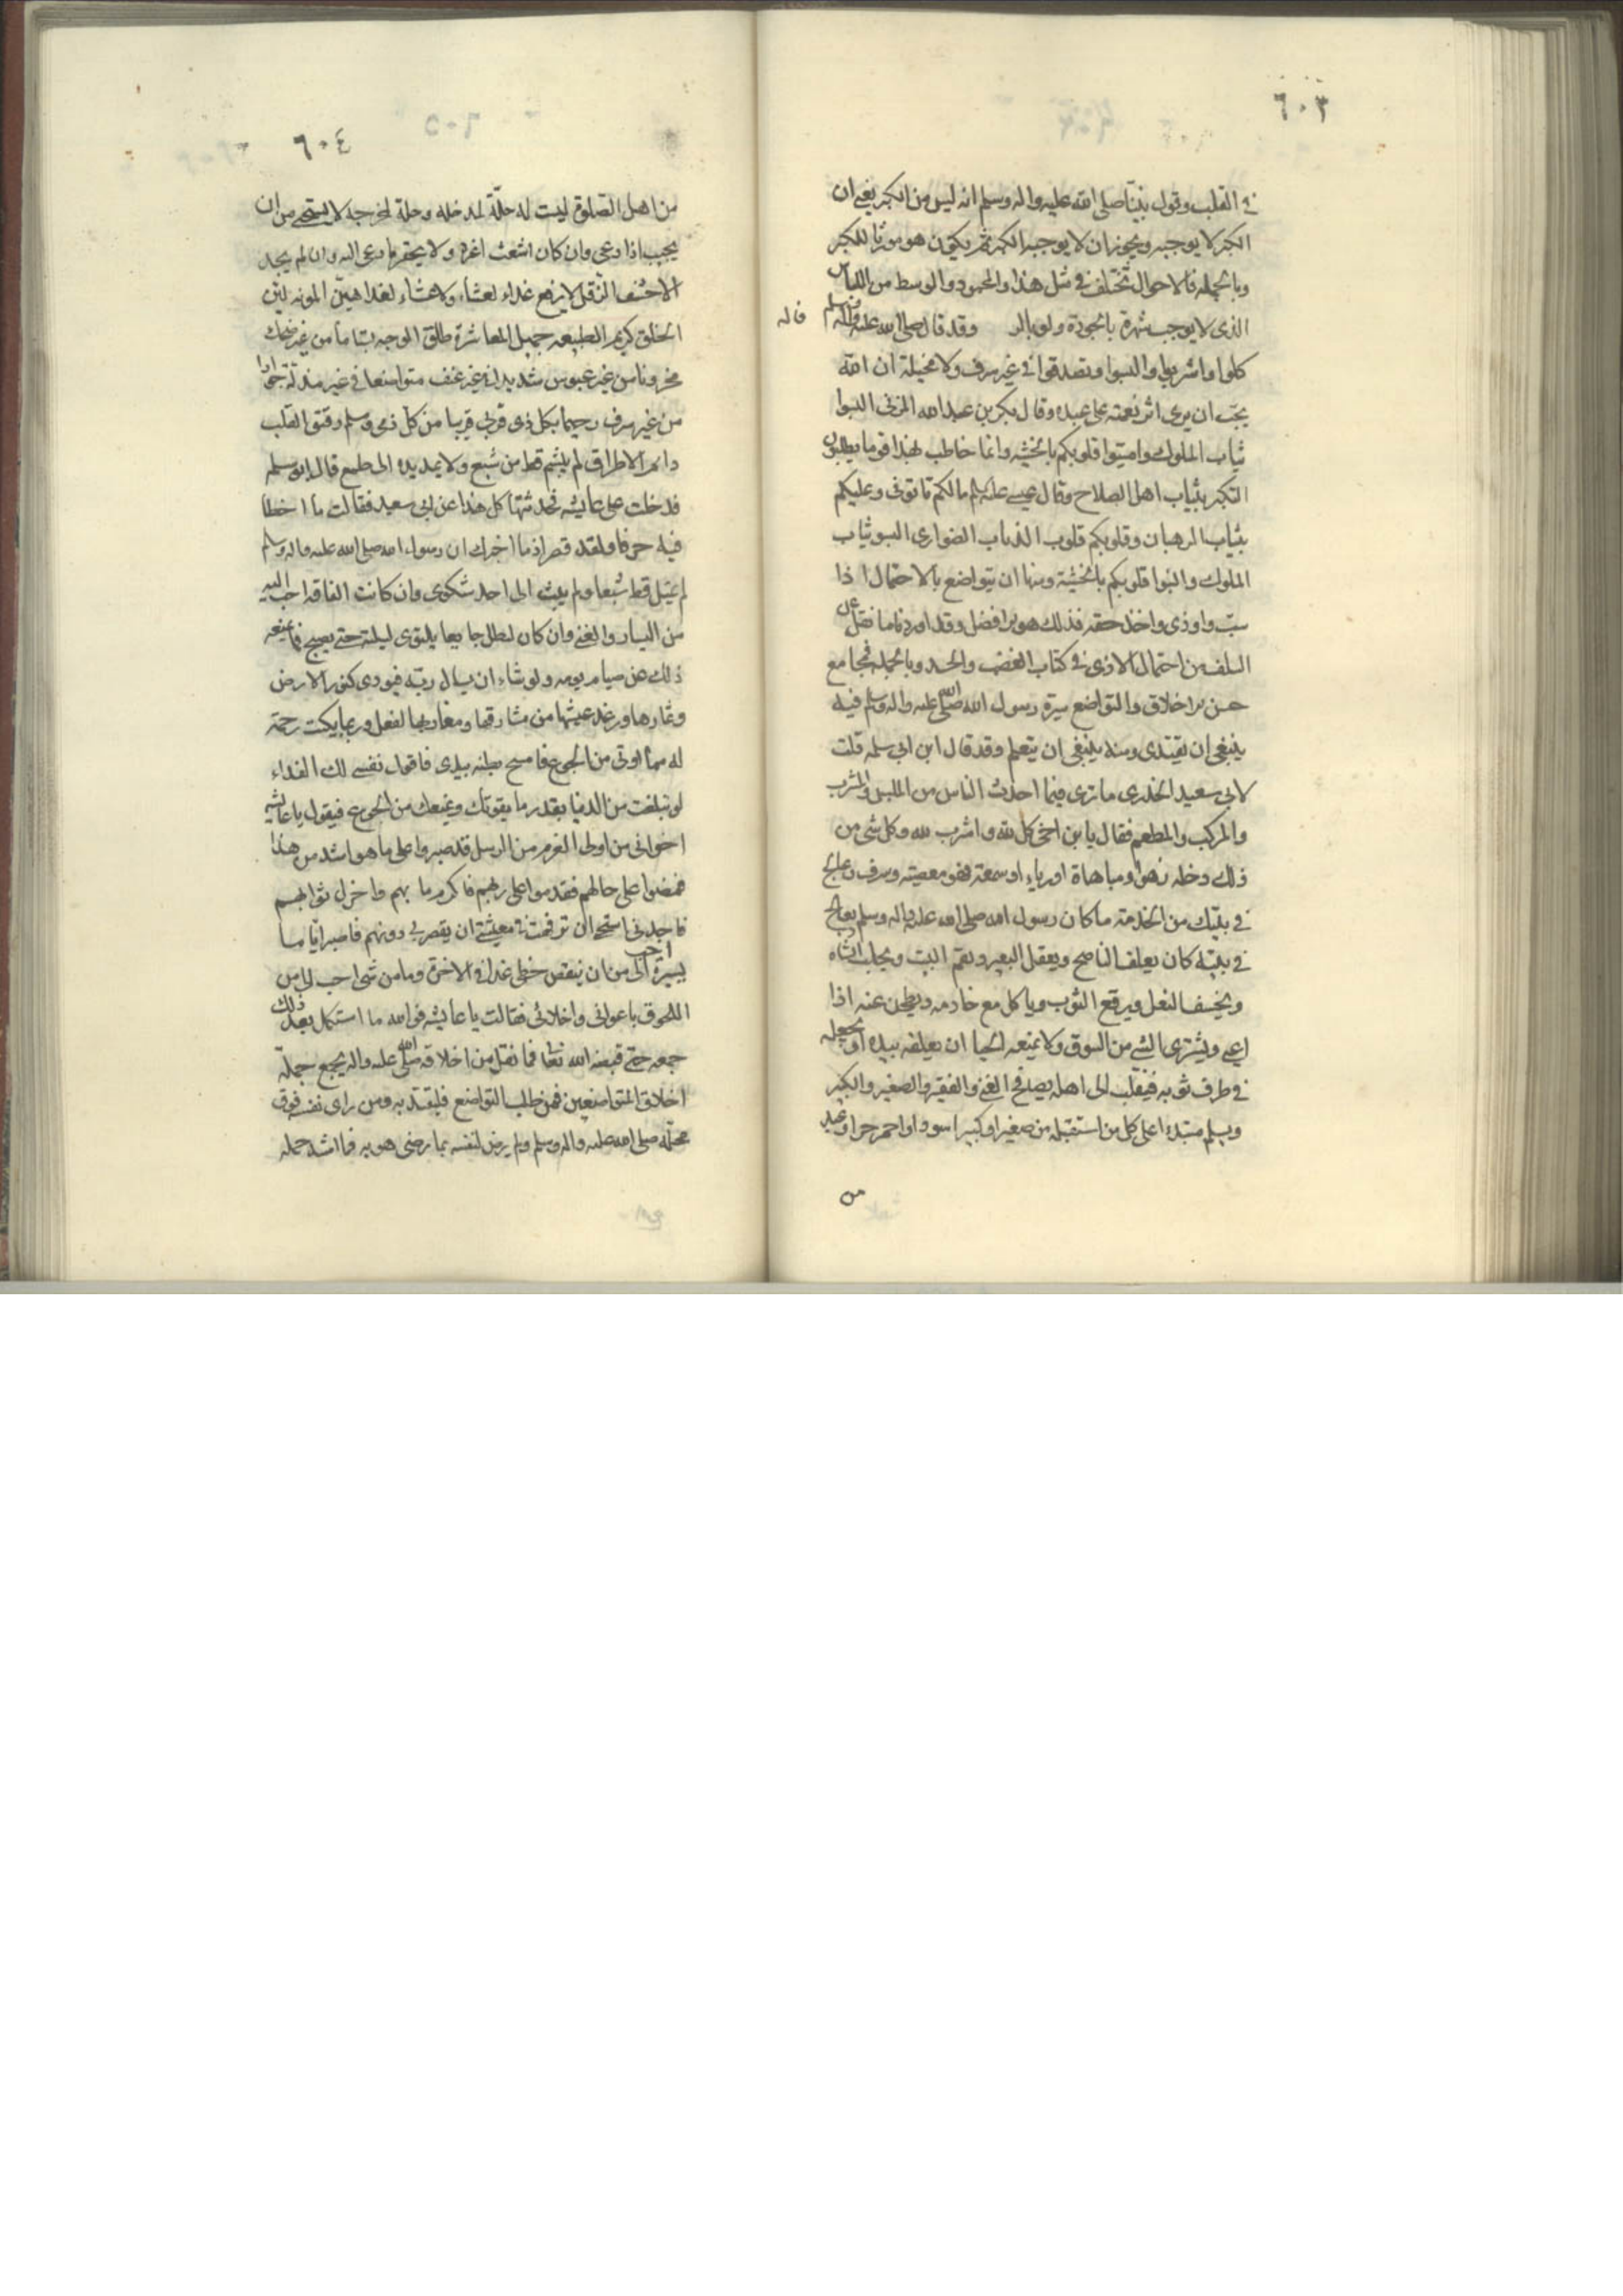 ٦٠٣
في القلب وقول نبينا صلى الله عليه واله وسلم انه ليس من الكبر يعني ان
الكبر لا يوجبه ويجوز ان لا يوجبه الكبر ثم يكون هو مورثا للكبر
وبالجمله فالاحوال تختلف في مثل هذا والمحمود والوسط من اللباس
الذى لا يوجب شهرة بالجودة ولا وقد قال صلى الله عليه واله وسلم
كلوا واشربوا والبسوا وتصدقوا في غير سرف ولا مخيلة ان الله
يحب ان يرى اثر نعمته على عبده وقال بكر بن عبد الله المزنى البسوا
ثياب الملوك واميتوا قلوبكم بالخشيه وانما خاطب بهذا قوما يطلبون
التكبر بثياب اهل الصلاح وقال عيسى عليه السلم مالكم تاتونى وعليكم
ثياب الرهبان وقلوبكم قلوب الذياب الضوارى البسو ثياب
الملوك والينوا قلوبكم بالخشية ومنها ان يتواضع بالاحتمال اذا
سبّ واوذى واخذ حقه فذلك هو افضل وقد اوردنا ما نقل عن
السلف من احتمال الاذى في كتاب الغضب والحسد وبالجمله فمجامع
حسن الاخلاق والتواضع سيرة رسول الله صلى الله عليه واله وسلم فيه
ينبغى ان يقتدى ومنه ينبغى ان يتعلم وقد قال ابن ابي سلمه قلت
لابي سعيد الخدرى ما ترى فيما احدث الناس من الملبس والمشرب
والمركب والمطعم فقال يا بن اخى كل لله واشرب لله وكل شى من
ذلك دخله زهو او مباهاة او رياء او سمعة فهو معصيته وسرف وعالج
في بيتك من الخدمة ما كان رسول الله صلى الله عليه واله وسلم يعالج
في بيته كان يعلف الناضح ويعقل البعير ويقم البيت ويحلب الشاه
ويخصف النعل ويرقع الثوب وياكل مع خادمه ويطحن عنه اذا
اعيى ويشترى الشئ من السوق ولا يمنعه الحيا ان يعلقه بيده او يجعله
في طرف ثوبه فينقلب الى اهله يصافح الغنى والفقير والصغير والكبير
ويسلم مبتدءا على كل من استقبله من صغير او كبير اسود او احمر حر او عبد
من
٦٠٤
من اهل الصلوة ليست له حلّة لمدخله وحلة لمخرجه لا يستحى من ان
يجيب اذا دعى وان كان اشعث اغبر ولا يحقر ما دعى اليه وان لم يجد
الا حشف الدقل لا يرفع غداء لعشاء ولا عشاء لغدا هين المونه لين
الخلق كريم الطبيعه جميل المعاشرة طلق الوجه بساما من غير ضحك
محزونا من غير عبوس شديدا في غير عنف متواضعا في غير مذلة جوادا
من غير سرف رحيما بكل ذى قربى قريبا من كل ذمى ومسلم رقيق القلب
دائم الاطراق لم يبشم قط من شبع ولا يمد يده الى طمع قال ابو سلمه
فدخلت على عايشه فحدثتها كل هذا عن ابى سعيد فقالت ما اخطا
فيه حرفا ولقد قصر اذ ما اخبرك ان رسول الله صلى الله عليه واله وسلم
لم يمتل قط شبعا ولم يبث الى احد شكوى وان كانت الفاقه احب اليه
من اليسار والغنى وان كان ليظل جايعا يلتوى ليلته حتى يصبح فما يمنعه
ذلك عن صيام يومه ولو شاء ان يسال ربه فيوتى كنوز الارض
وثمارها ورغد عيشها من مشارقها ومغاربها لفعل وربما بكيت رحمة
له مما اوتى من الجوع فامسح بطنه بيدى فاقول نفسى لك الفداء
لو تبلغت من الدنيا بقدر ما يقوتك ويمنعك من الجوع فيقول يا عائشه
اخوانى من اولى العزم من الرسل قد صبروا على ما هو اشد من هذا
فمضوا على حالهم فقدموا على ربهم فاكرم ما بهم واجزل ثوابهم
فاجدنى استحى ان ترفهت في معيشتى ان يقصر بى دونهم فاصبر اياما
يسيرة احب الى من ان ينقص حظى غدا في الاخرة وما من شى احب الى من
اللحوق باخوانى واخلائى فقالت يا عايشه فوالله ما استكمل بعد ذلك
جمعه حتى قبضه الله تعالى فما نقل من اخلاقه صلى الله عليه واله يجمع جملة
اخلاق المتواضعين فمن طلب التواضع فليقتد به ومن راى نفسه فوق
محله صلى الله عليه واله وسلم ولم يرض لنفسه بما رضى هو به فما اشد جهله